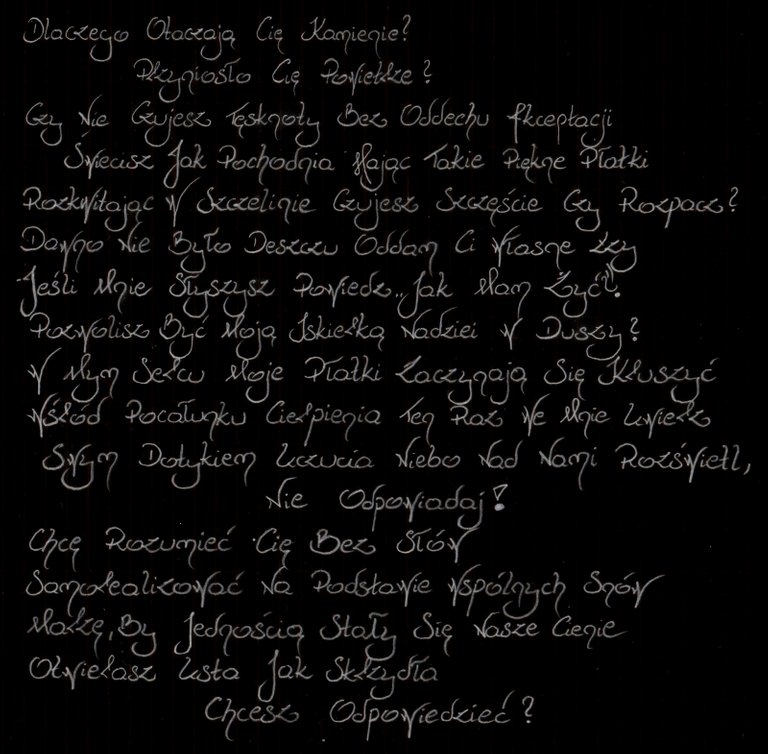 Dlaczego Otaczają Cię Kamienie?
Przyniosło Cię Powietrze?
Czy Nie Czujesz Tęsknoty Bez Oddechu Akceptacji
Świecisz Jak Pochodnia Mając Takie Piękne Płatki
Rozkwitając W Szczelinie Czujesz Szczęście Czy Rozpacz?
Dawno Nie Było Deszczu Oddam Ci Własne Łzy
Jeśli Mnie Słyszysz Powiedz.. Jak Mam Żyć?
Pozwolisz Być Moją Iskierką Nadziei W Duszy?
W Mym Sercu Moje Płatki Zaczynają Się Kruszyć
Wśród Pocałunku Cierpienia Ten Raz We Mnie Uwierz
Swym Dotykiem Uczucia Niebo Nad Nami Rozświetl,
Nie Odpowiadaj!
Chcę Rozumieć Cię Bez Słów
Samorealizować Na Podstawie Wspólnych Snów
Marzę, By Jednością Stały Się Nasze Cienie
Otwierasz Usta Jak Skrzydła
Chcesz Odpowiedzieć?